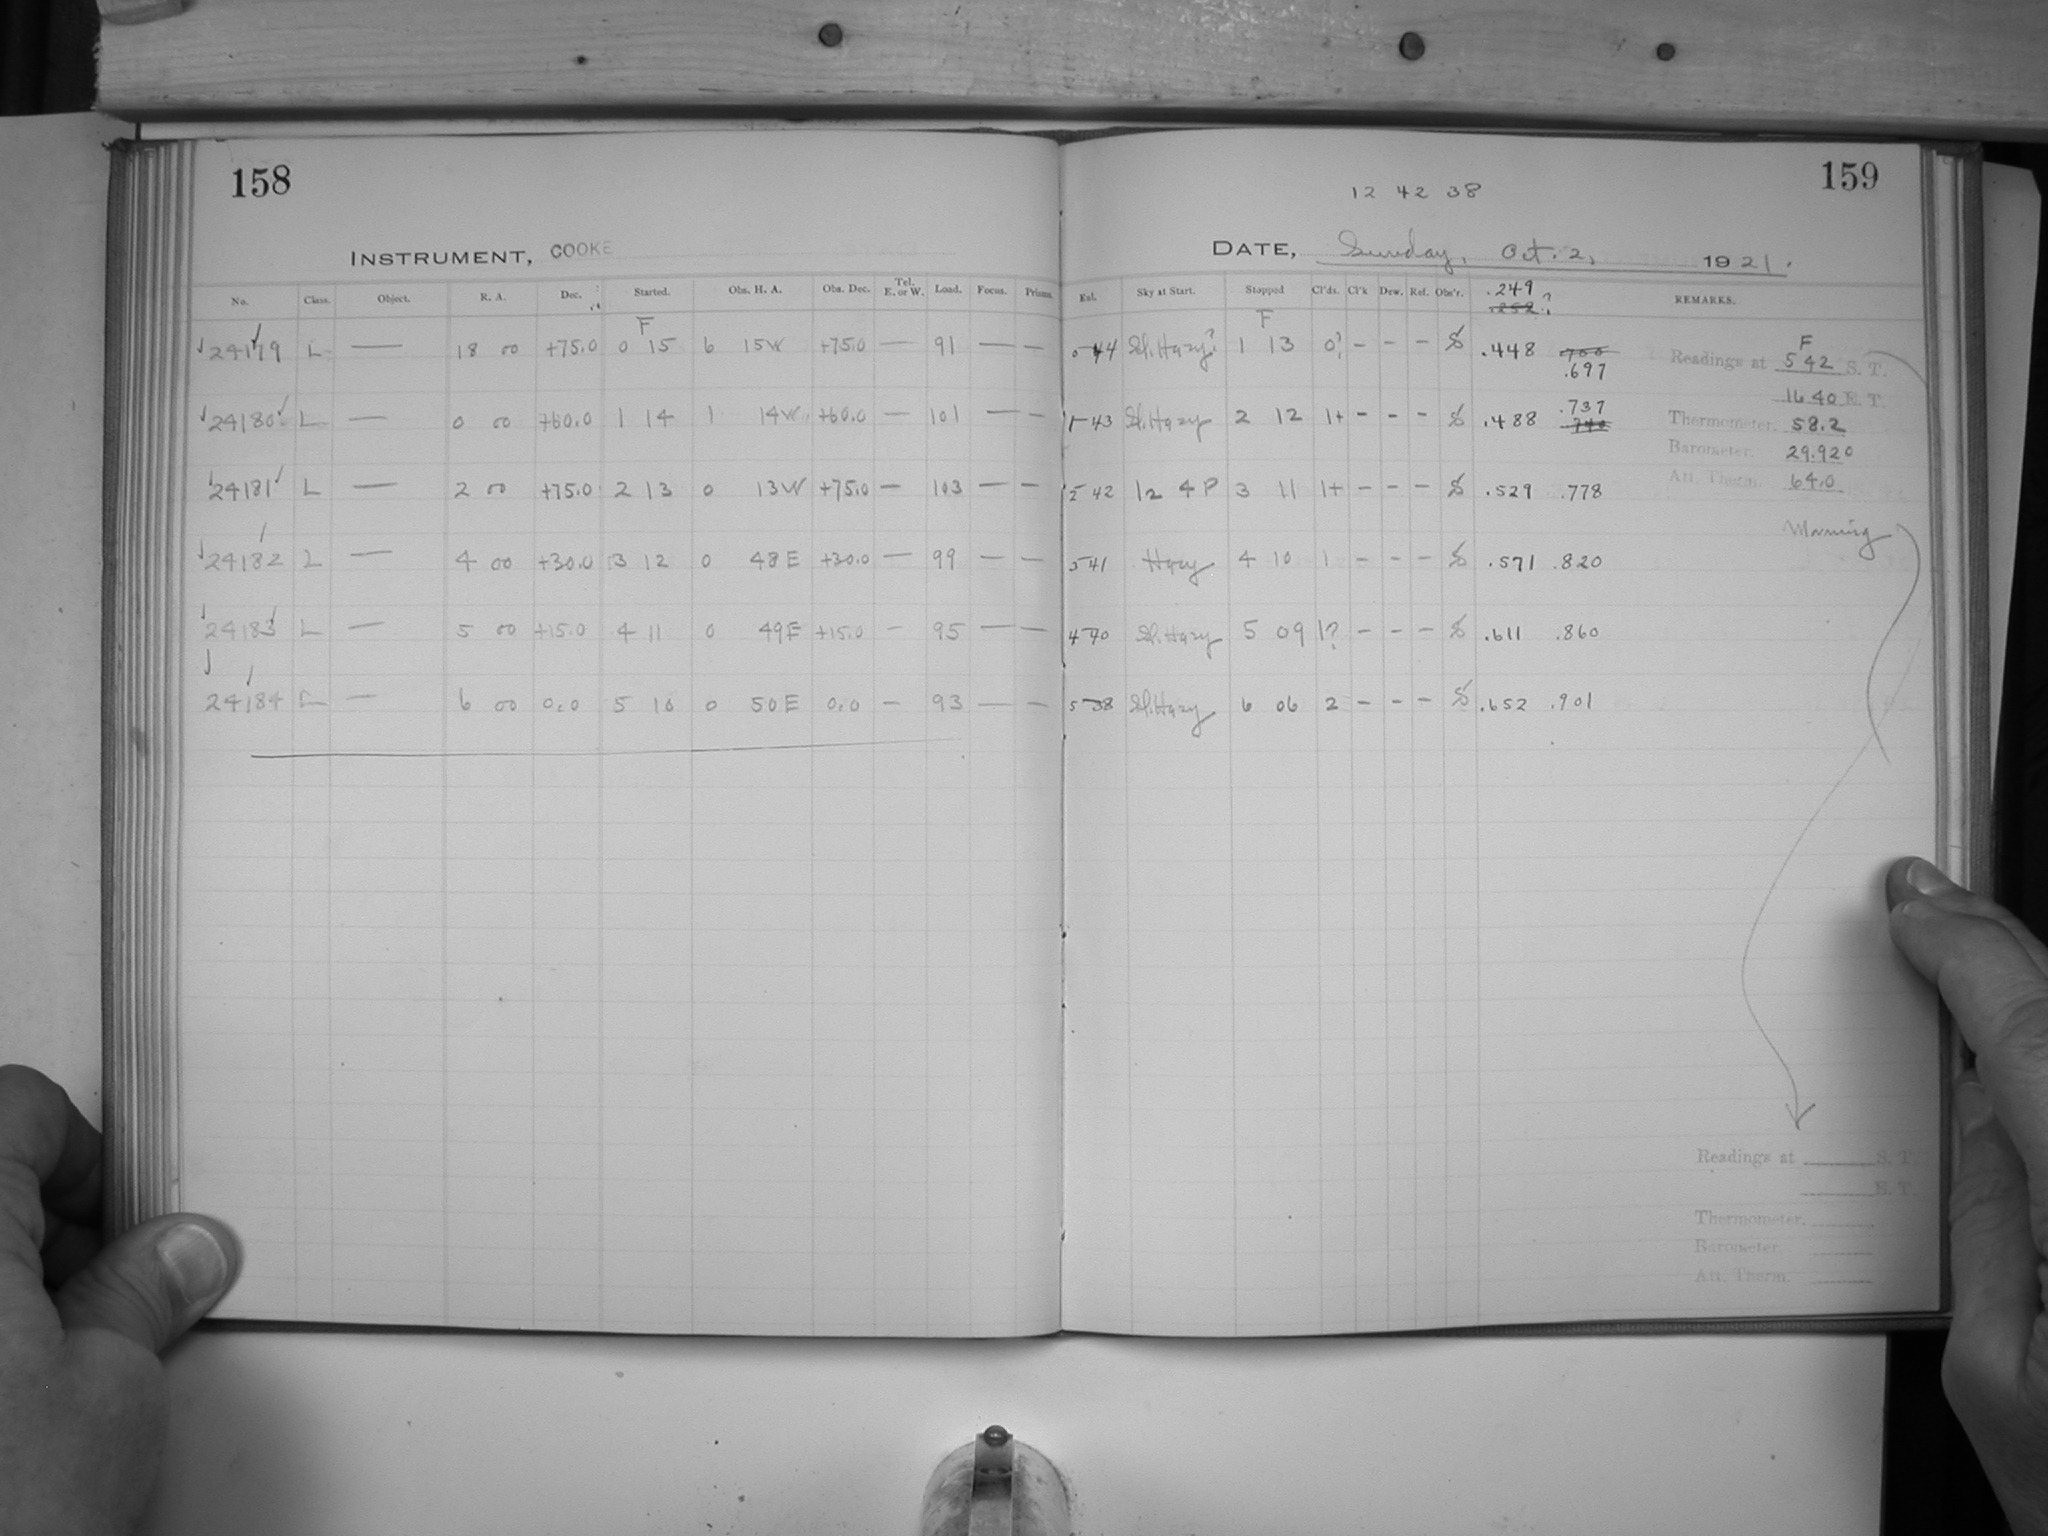 158
INSTRUMENT, COOKE
No. Class. Object. R. A. Dec. Started. Obs. H. A. Obs. Dec. Tel. E. or W. Load. Focus. Prisms.
F
24179 L — 18 00 +75.0 0 15 6 15W +75.0 — 91 — —
24180 L — 0 00 +60.0 1 14 1 14W +60.0 — 101 — —
24181 L — 2 00 +75.0 2 13 0 13W +75.0 — 103 — —
24182 L — 4 00 +30.0 3 12 0 48E +30.0 — 99 — —
24183 L — 5 00 +15.0 4 11 0 49E +15.0 — 95 — —
24184 L — 6 00 0.0 5 10 0 50E 0.0 — 93 — —
159
12 42 38
DATE, Sunday, Oct. 2, 1921.
Exl. Sky at Start. Stopped Cl'ds. Cl'k Dew. Ref. Obs'r. .249 REMARKS.
.252?
F
44 Sl. Hazy? 1 13 0? – – – S .448 .700
.697
43 Sl. Hazy 2 12 1+ – – – S .488 .737
.740
42 12 4P 3 11 1+ – – – S .529 .778
41 Hazy 4 10 1 – – – S .571 .820
40 Sl. Hazy 5 09 1? – – – S .611 .860
38 Sl. Hazy 6 06 2 – – – S .652 .901
F
Readings at 5 42 S. T.
16 40 E. T.
Thermometer. 58.2
Barometer. 29.920
Att. Therm. 64.0
Morning
Readings at S. T.
E. T.
Thermometer.
Barometer
Att. Therm.